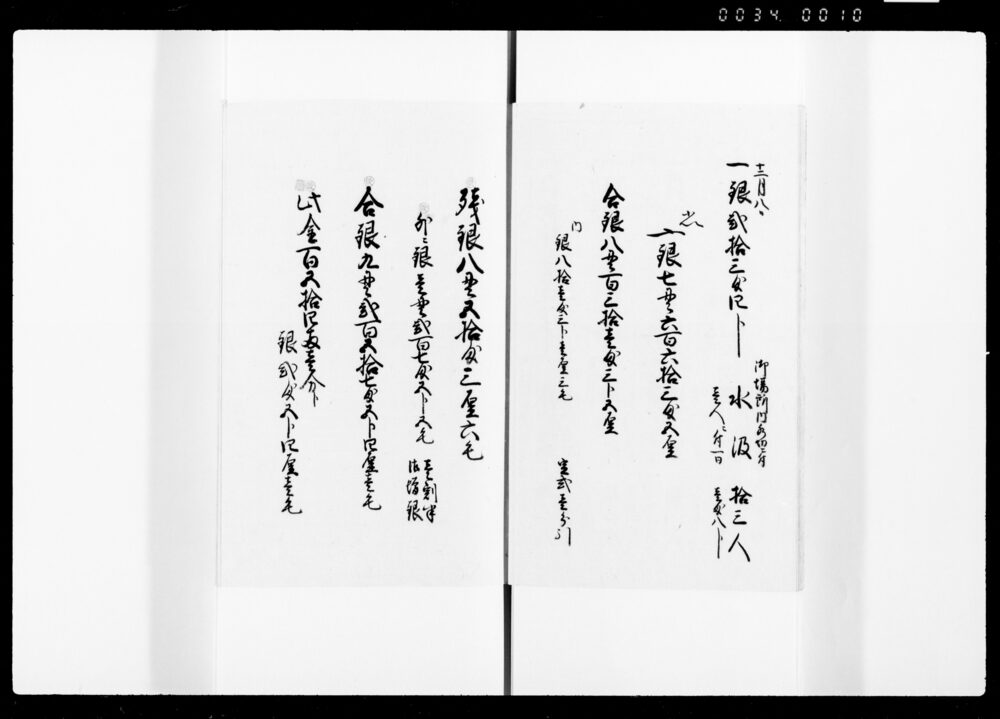 0034 0010
十二月八日
一銀弐拾三匁四分 水汲 拾三人
壱人ニ付一日 壱匁八分
一銀七貫六百六拾三匁五厘
合銀八貫百三拾壱匁三分五厘
内
銀八拾壱匁三分壱厘三毛 定式壱分引
残銀八貫五拾匁三厘六毛
外ニ銀壱貫弐百七匁五分五毛 壱割半
御増銀
合銀九貫弐百五拾七匁五分四厘壱毛
此金百五拾四両壱分ト
銀弐匁五分四厘壱毛